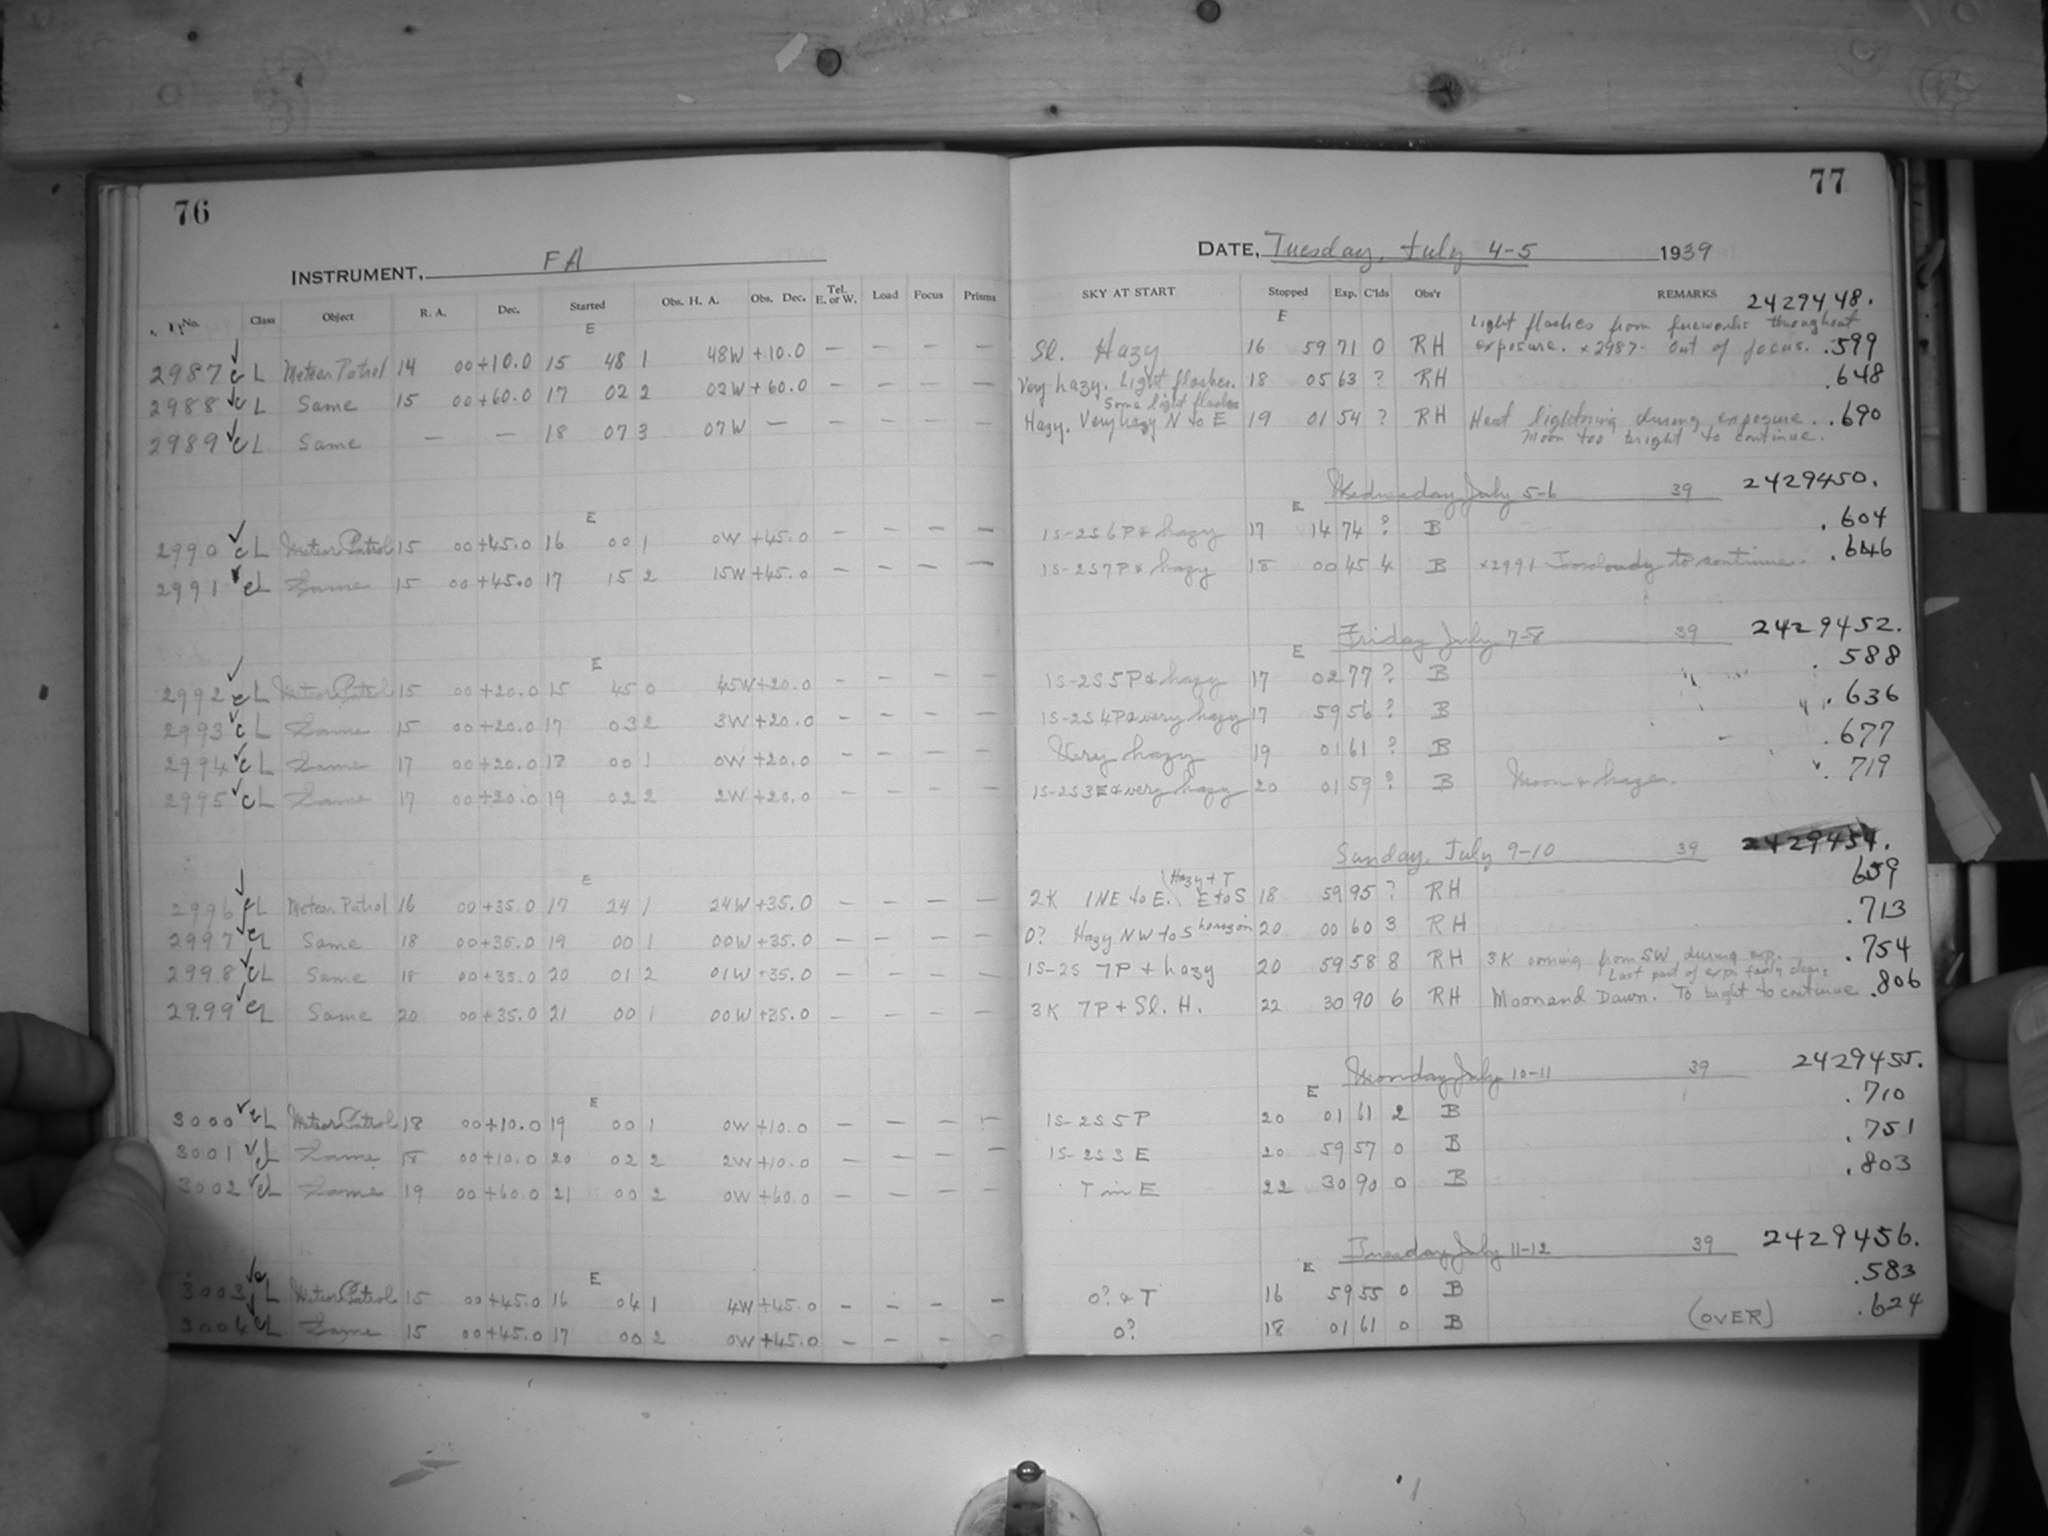 76
INSTRUMENT, FA
No. Class Object R. A. Dec. Started Obs. H. A. Obs. Dec. Tel. E. or W. Load Focus Prisms
E
2987 c L Meteor Patrol 14 00 +10.0 15 48 1 48W +10.0 — — — —
2988 c L Same 15 00 +60.0 17 02 2 02W +60.0 — — — —
2989 c L Same — — 18 07 3 07W — — — — —
E
2990 c L Meteor Patrol 15 00 +45.0 16 00 1 0W +45.0 — — — —
2991 c L Same 15 00 +45.0 17 15 2 15W +45.0 — — — —
E
2992 c L Meteor Patrol 15 00 +20.0 15 45 0 45W +20.0 — — — —
2993 c L Same 15 00 +20.0 17 03 2 3W +20.0 — — — —
2994 c L Same 17 00 +20.0 18 00 1 0W +20.0 — — — —
2995 c L Same 17 00 +20.0 19 02 2 2W +20.0 — — — —
E
2996 c L Meteor Patrol 16 00 +35.0 17 24 1 24W +35.0 — — — —
2997 c L Same 18 00 +35.0 19 00 1 00W +35.0 — — — —
2998 c L Same 18 00 +35.0 20 01 2 01W +35.0 — — — —
2999 c L Same 20 00 +35.0 21 00 1 00W +35.0 — — — —
E
3000 c L Meteor Patrol 18 00 +10.0 19 00 1 0W +10.0 — — — —
3001 c L Same 18 00 +10.0 20 02 2 2W +10.0 — — — —
3002 c L Same 19 00 +60.0 21 00 2 0W +60.0 — — — —
E
3003 c L Meteor Patrol 15 00 +45.0 16 04 1 4W +45.0 — — — —
3004 c L Same 15 00 +45.0 17 00 2 0W +45.0 — — — —
77
DATE, Tuesday, July 4-5 1939
SKY AT START Stopped Exp. C'lds Obs'r REMARKS 2429448.
E
Light flashes from fireworks throughout
Sl. Hazy 16 59 71 0 RH exposure. x2987- Out of focus. .599
Very hazy. Light flashes. 18 05 63 ? RH .648
Some light flashes
Hazy. Very hazy N to E 19 01 54 ? RH Heat lightning during exposure. .690
Moon too bright to continue.
Wednesday July 5-6 39 2429450.
E
1S-2S 6P & hazy 17 14 74 ? B .604
1S-2S 7P & hazy 18 00 45 4 B x2991 Too cloudy to continue. .646
Friday July 7-8 39 2429452.
E
1S-2S 5P & hazy 17 02 77 ? B .588
1S-2S 4P & very hazy 17 59 56 ? B .636
Very hazy 19 01 61 ? B .677
1S-2S 3E & very hazy 20 01 59 ? B Moon & haze. .719
Sunday, July 9-10 39 2429454.
Hazy + T
2K 1NE to E. E to S 18 59 95 ? RH .659
0? Hazy NW to S horizon 20 00 60 3 RH .713
1S-2S 7P + hazy 20 59 58 8 RH 3K coming from SW during exp. .754
Last part of exp. fairly clear
3K 7P + Sl. H. 22 30 90 6 RH Moon and Dawn. To bright to continue .806
Monday July 10-11 39 2429455.
E
1S-2S 5P 20 01 61 2 B .710
1S-2S 3E 20 59 57 0 B .751
T in E 22 30 90 0 B .803
Tuesday July 11-12 39 2429456.
E
0? & T 16 59 55 0 B .583
0? 18 01 61 0 B (OVER) .624